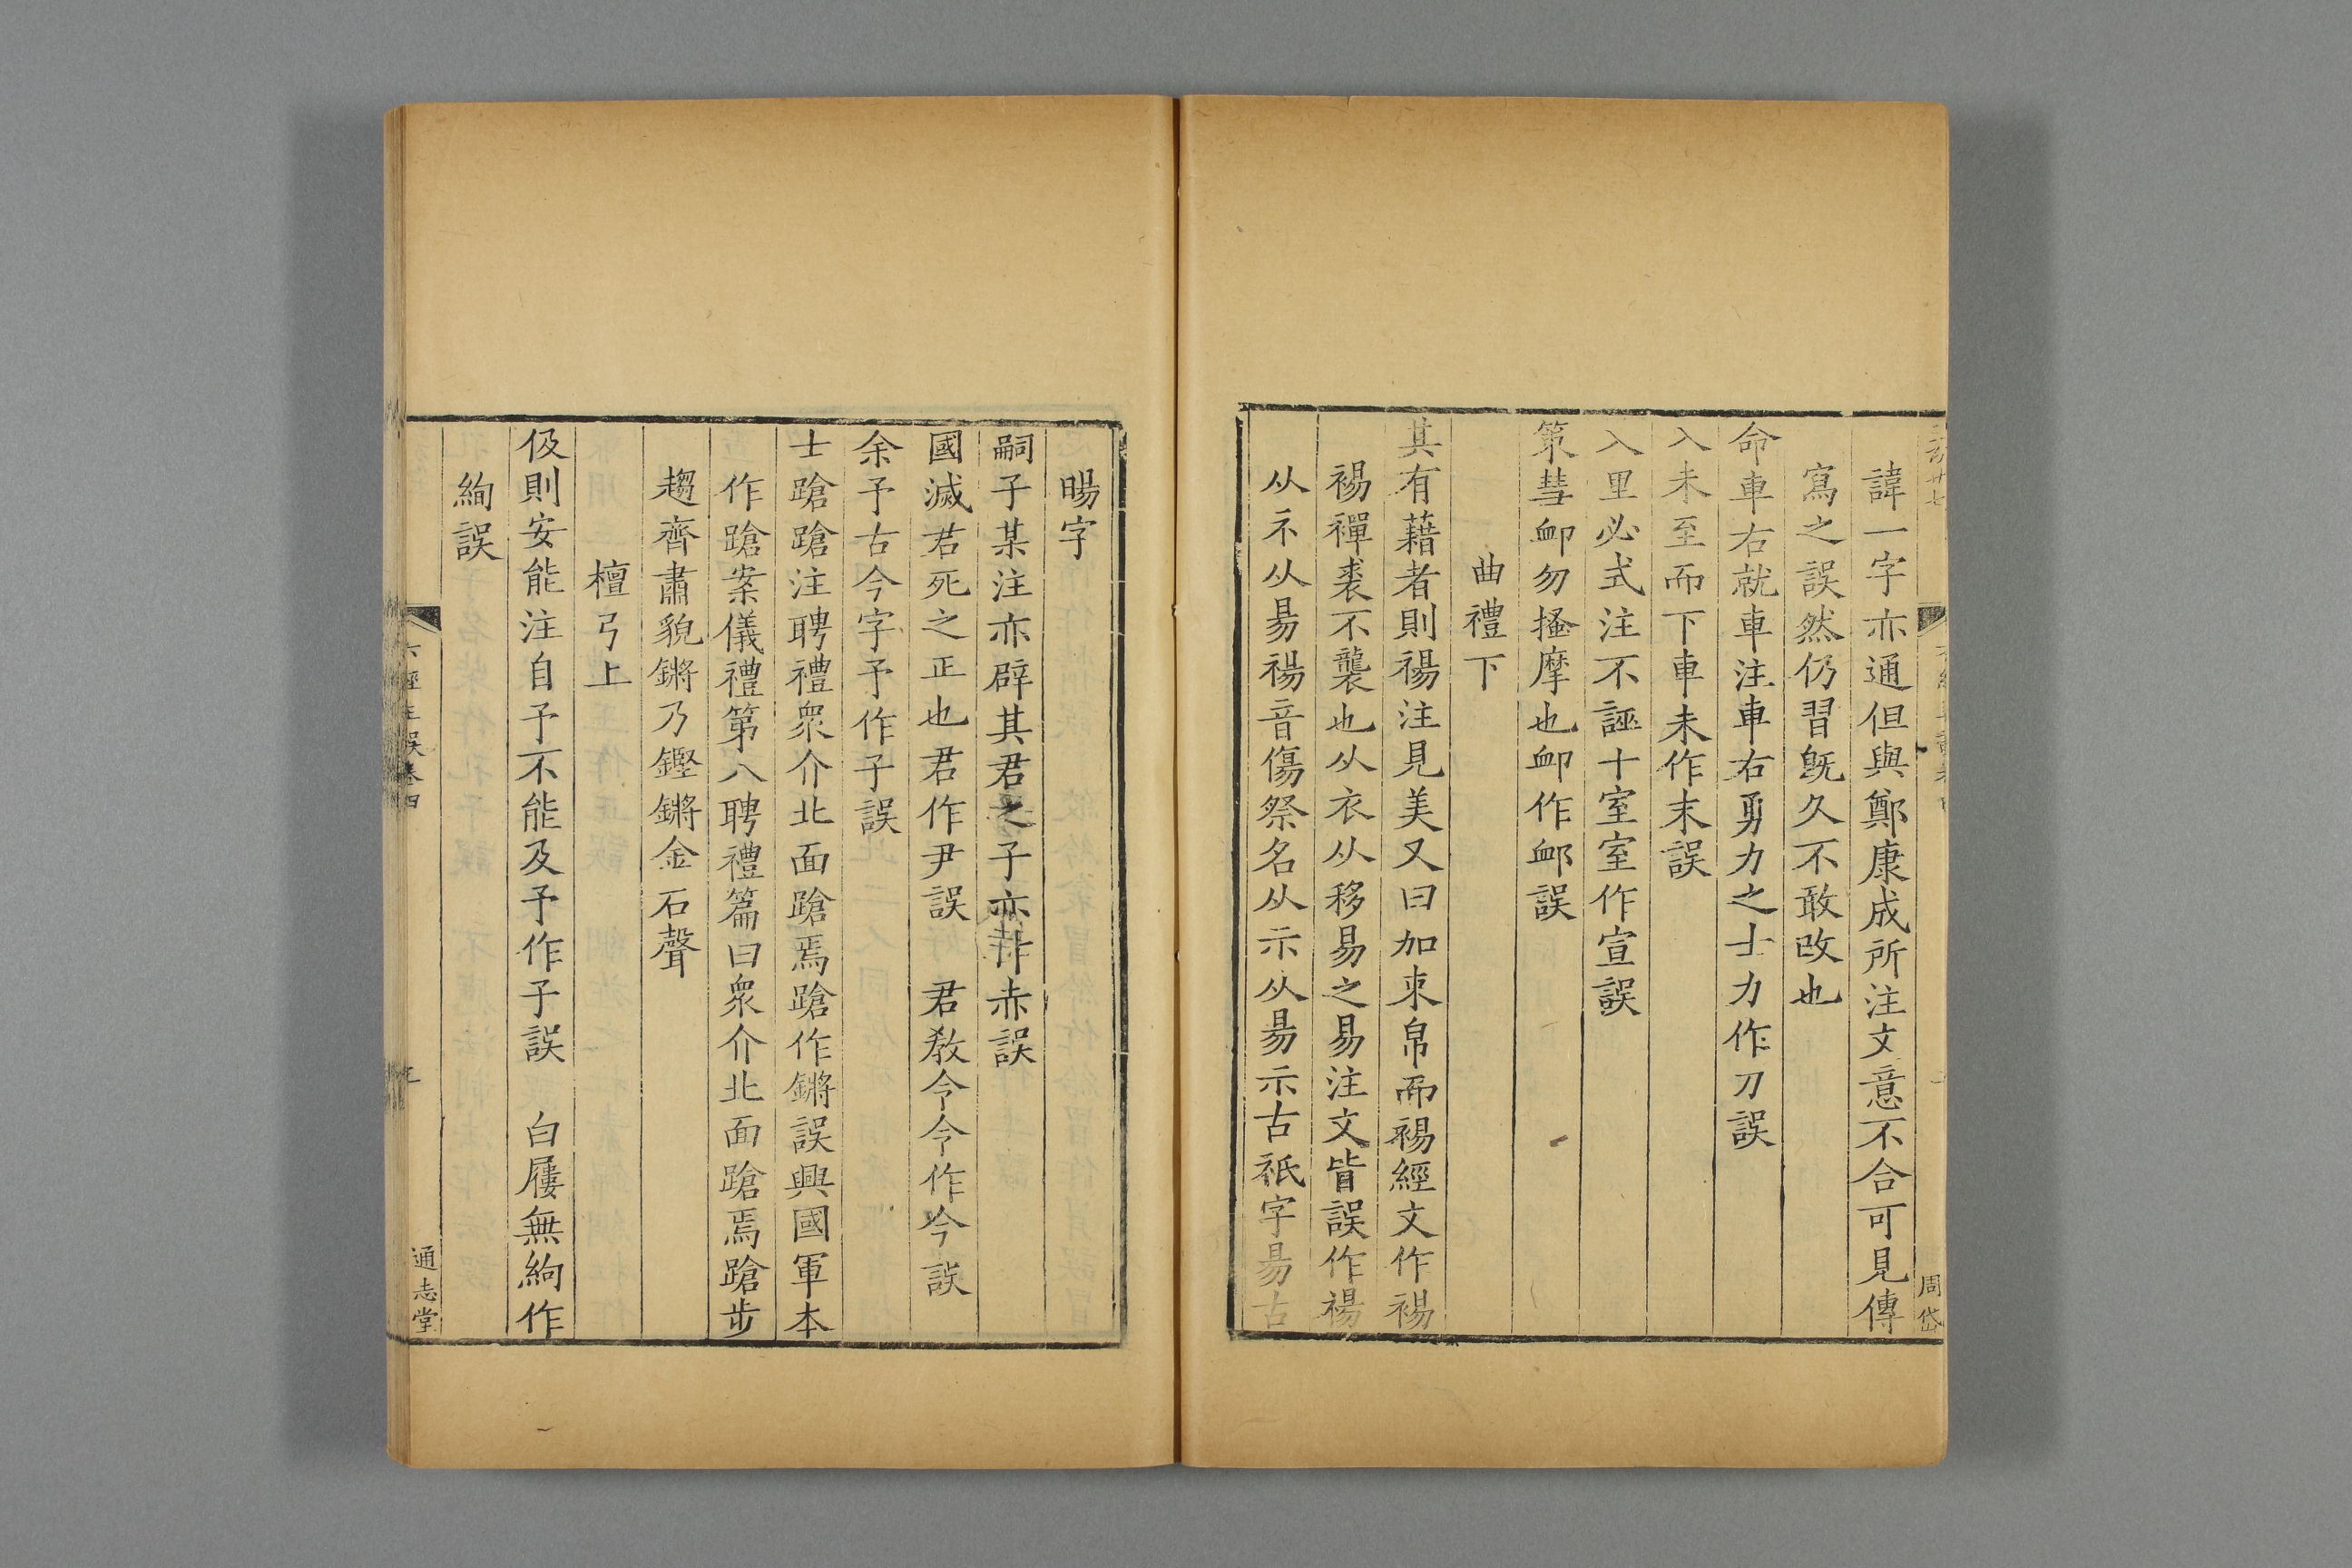 諱一字亦通但與鄭康成所注文意不合可見傳
寫之誤然仍習旣久不敢改也
命車右就車注車右勇力之士力作刀誤
入未至而下車未作末誤
入里必式注不誣十室室作宣誤
策彗卹勿搔摩也卹作䘏誤
曲禮下
其有藉者則裼注見美又曰加束帛而裼經文作裼
裼襌裘不襲也从衣从移易之易注文皆誤作禓
从衤从昜禓音傷祭名从示从昜示古祇字昜古
周岱
暘字
嗣子某注亦辟其君之子亦作赤誤
國滅君死之正也君作尹誤　君教令令作今誤
余予古今字予作子誤
士蹌蹌注聘禮衆介北面蹌焉蹌作鏘誤興國軍本
作蹌案儀禮第八聘禮篇曰衆介北面蹌焉蹌步
趨齊肅貌鏘乃鏗鏘金石聲
檀弓上
伋則安能注自予不能及予作子誤　白屨無絇作
絢誤
六經正誤卷四
通志堂